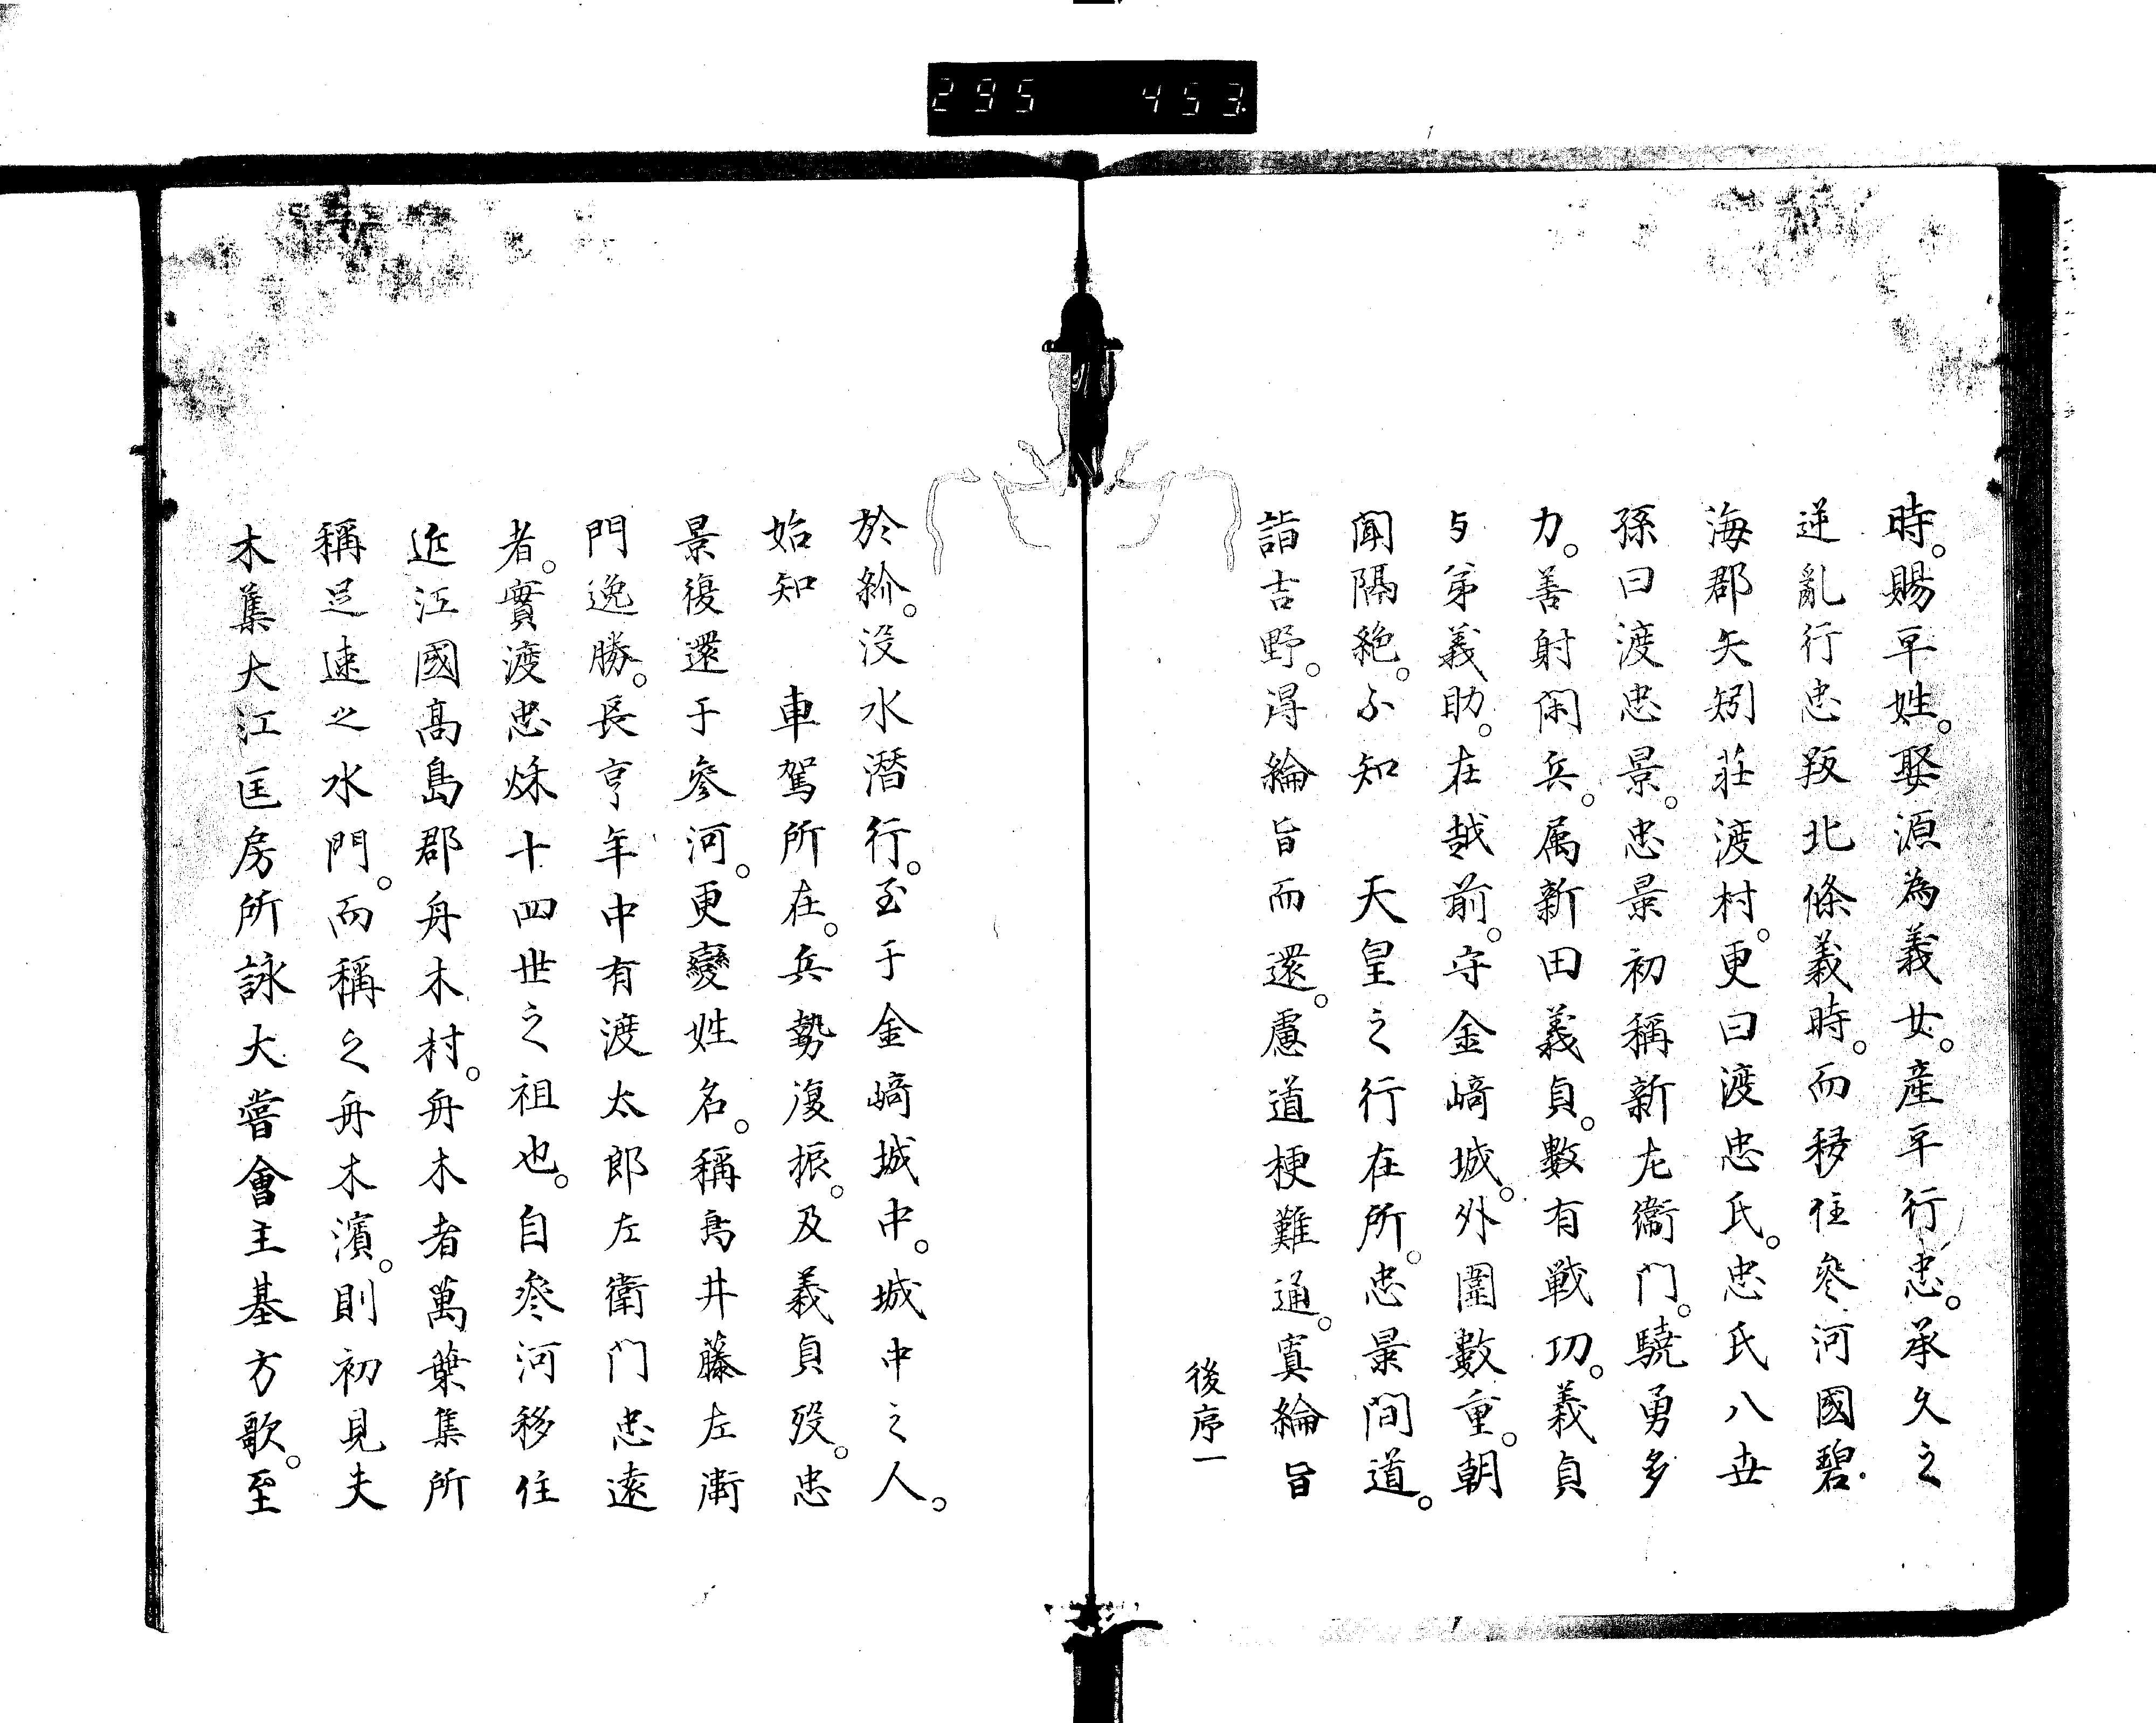 295 453
時。賜平姓。娶源為義女。産平行忠。承久之
逆亂行忠叛北條義時。而移住参河國碧
海郡矢矧莊渡村。更曰渡忠氏。忠氏八世
孫曰渡忠景。忠景初稱新左衞門。驍勇多
力。善射閑兵。属新田義貞。數有戦功。義貞
与弟義助。在越前。守金﨑城。外圍數重。朝
聞隔絶。不知　天皇之行在所。忠景間道。
詣吉野。得綸旨而還。慮道梗難通。寘綸旨
後序一
於紒。没水潜行。至于金﨑城中。城中之人。
始知　車駕所在。兵勢復振。及義貞歿。忠
景復還于参河。更變姓名。稱鳥井藤左衞
門逸勝。長亨年中有渡太郎左衛門忠遠
者。實渡忠秌十四世之祖也。自参河移住
近江國高島郡舟木村。舟木者萬葉集所
稱足速之水門。而稱之舟木濱。則初見夫
木集大江匡房所詠大嘗會主基方歌。至